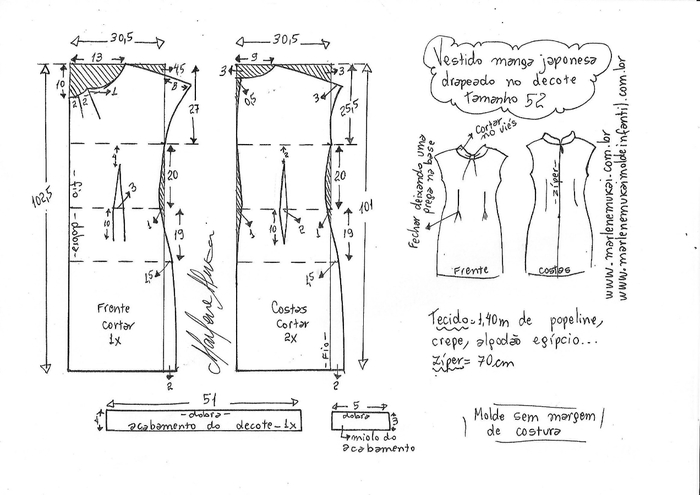 30,5
13
45
8
10
2
2
1
27
4
20
3
10
1
19
1,5
102,5
-Fio-
-dobra-
Frente
cortar
1x
2
30,5
9
3
3
0,5
3
25,5
2
20
2
10
1
1
19
1,5
101
Costas
Cortar
2x
-Fio-
2
Marlene Mukai
51
-dobra-
acabamento do decote-1x
5
dobra
3
miolo do
acabamento
Vestido manga japonesa
drapeado no decote
tamanho 52
Cortar
no viés
Fechar deixando uma
prega na base
-zíper-
Frente
costas
www.marlenemukai.com.br
www.marlenemukaimoldeinfantil.com.br
Tecido=1,40m de popeline,
crepe, algodão egípcio...
zíper= 70cm
Molde sem margem
de costura